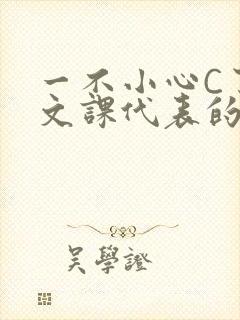 一不小心C
文課代表的
吳學證